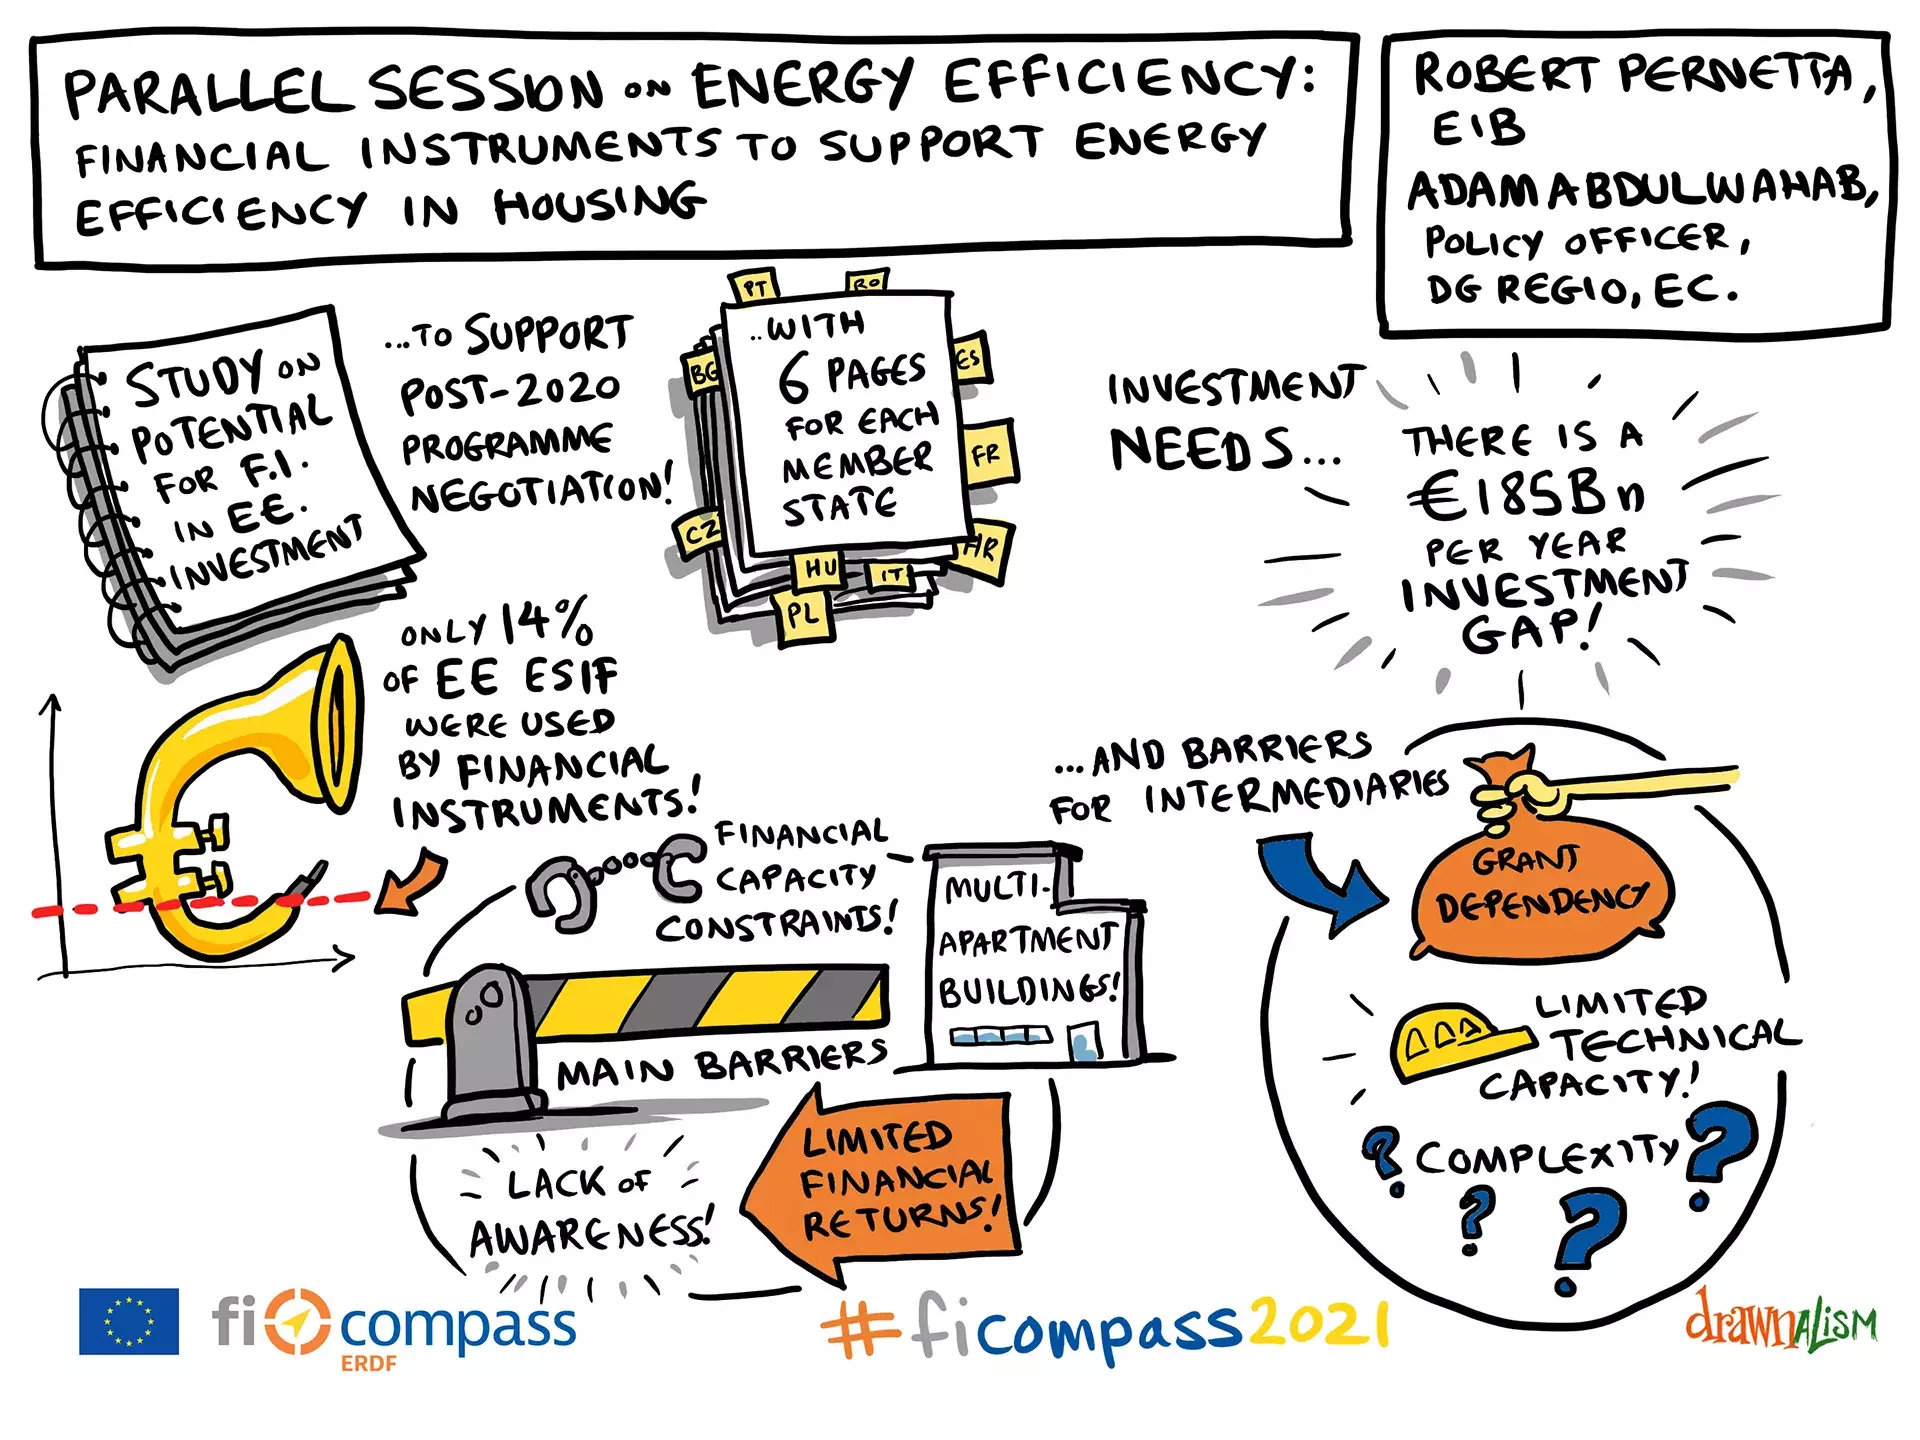 PARALLEL SESSION ON ENERGY EFFICIENCY:
FINANCIAL INSTRUMENTS TO SUPPORT ENERGY
EFFICIENCY IN HOUSING
ROBERT PERNETTA,
EIB
ADAM ABDULWAHAB,
POLICY OFFICER,
DG REGIO, EC.
STUDY ON
POTENTIAL
FOR F.I.
IN EE.
INVESTMENT
...TO SUPPORT
POST-2020
PROGRAMME
NEGOTIATION!
PT
RO
BG
ES
FR
CZ
HR
HU
IT
PL
..WITH
6 PAGES
FOR EACH
MEMBER
STATE
INVESTMENT
NEEDS...
THERE IS A
€185Bn
PER YEAR
INVESTMENT
GAP!
ONLY 14%
OF EE ESIF
WERE USED
BY FINANCIAL
INSTRUMENTS!
FINANCIAL
CAPACITY
CONSTRAINTS!
MULTI-
APARTMENT
BUILDINGS!
MAIN BARRIERS
LACK OF
AWARENESS!
LIMITED
FINANCIAL
RETURNS!
...AND BARRIERS
FOR INTERMEDIARIES
GRANT
DEPENDENCY
LIMITED
TECHNICAL
CAPACITY!
? COMPLEXITY ?
? ?
fi compass
ERDF
#ficompass2021
drawnALISM